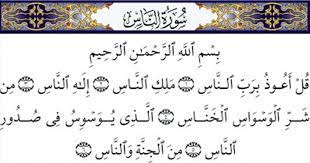 سُورَةُ النَّاسِ
بِسْمِ اللَّهِ الرَّحْمَٰنِ الرَّحِيمِ
قُلْ أَعُوذُ بِرَبِّ النَّاسِ ۝١ مَلِكِ النَّاسِ ۝٢ إِلَٰهِ النَّاسِ ۝٣ مِن
شَرِّ الْوَسْوَاسِ الْخَنَّاسِ ۝٤ الَّذِي يُوَسْوِسُ فِي صُدُورِ
النَّاسِ ۝٥ مِنَ الْجِنَّةِ وَالنَّاسِ ۝٦